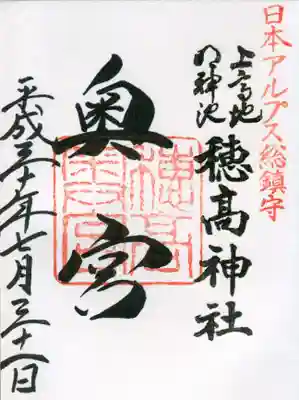 日本アルプス総鎮守
上高地
明神池
穂高神社
奥宮
平成三十年七月三十一日